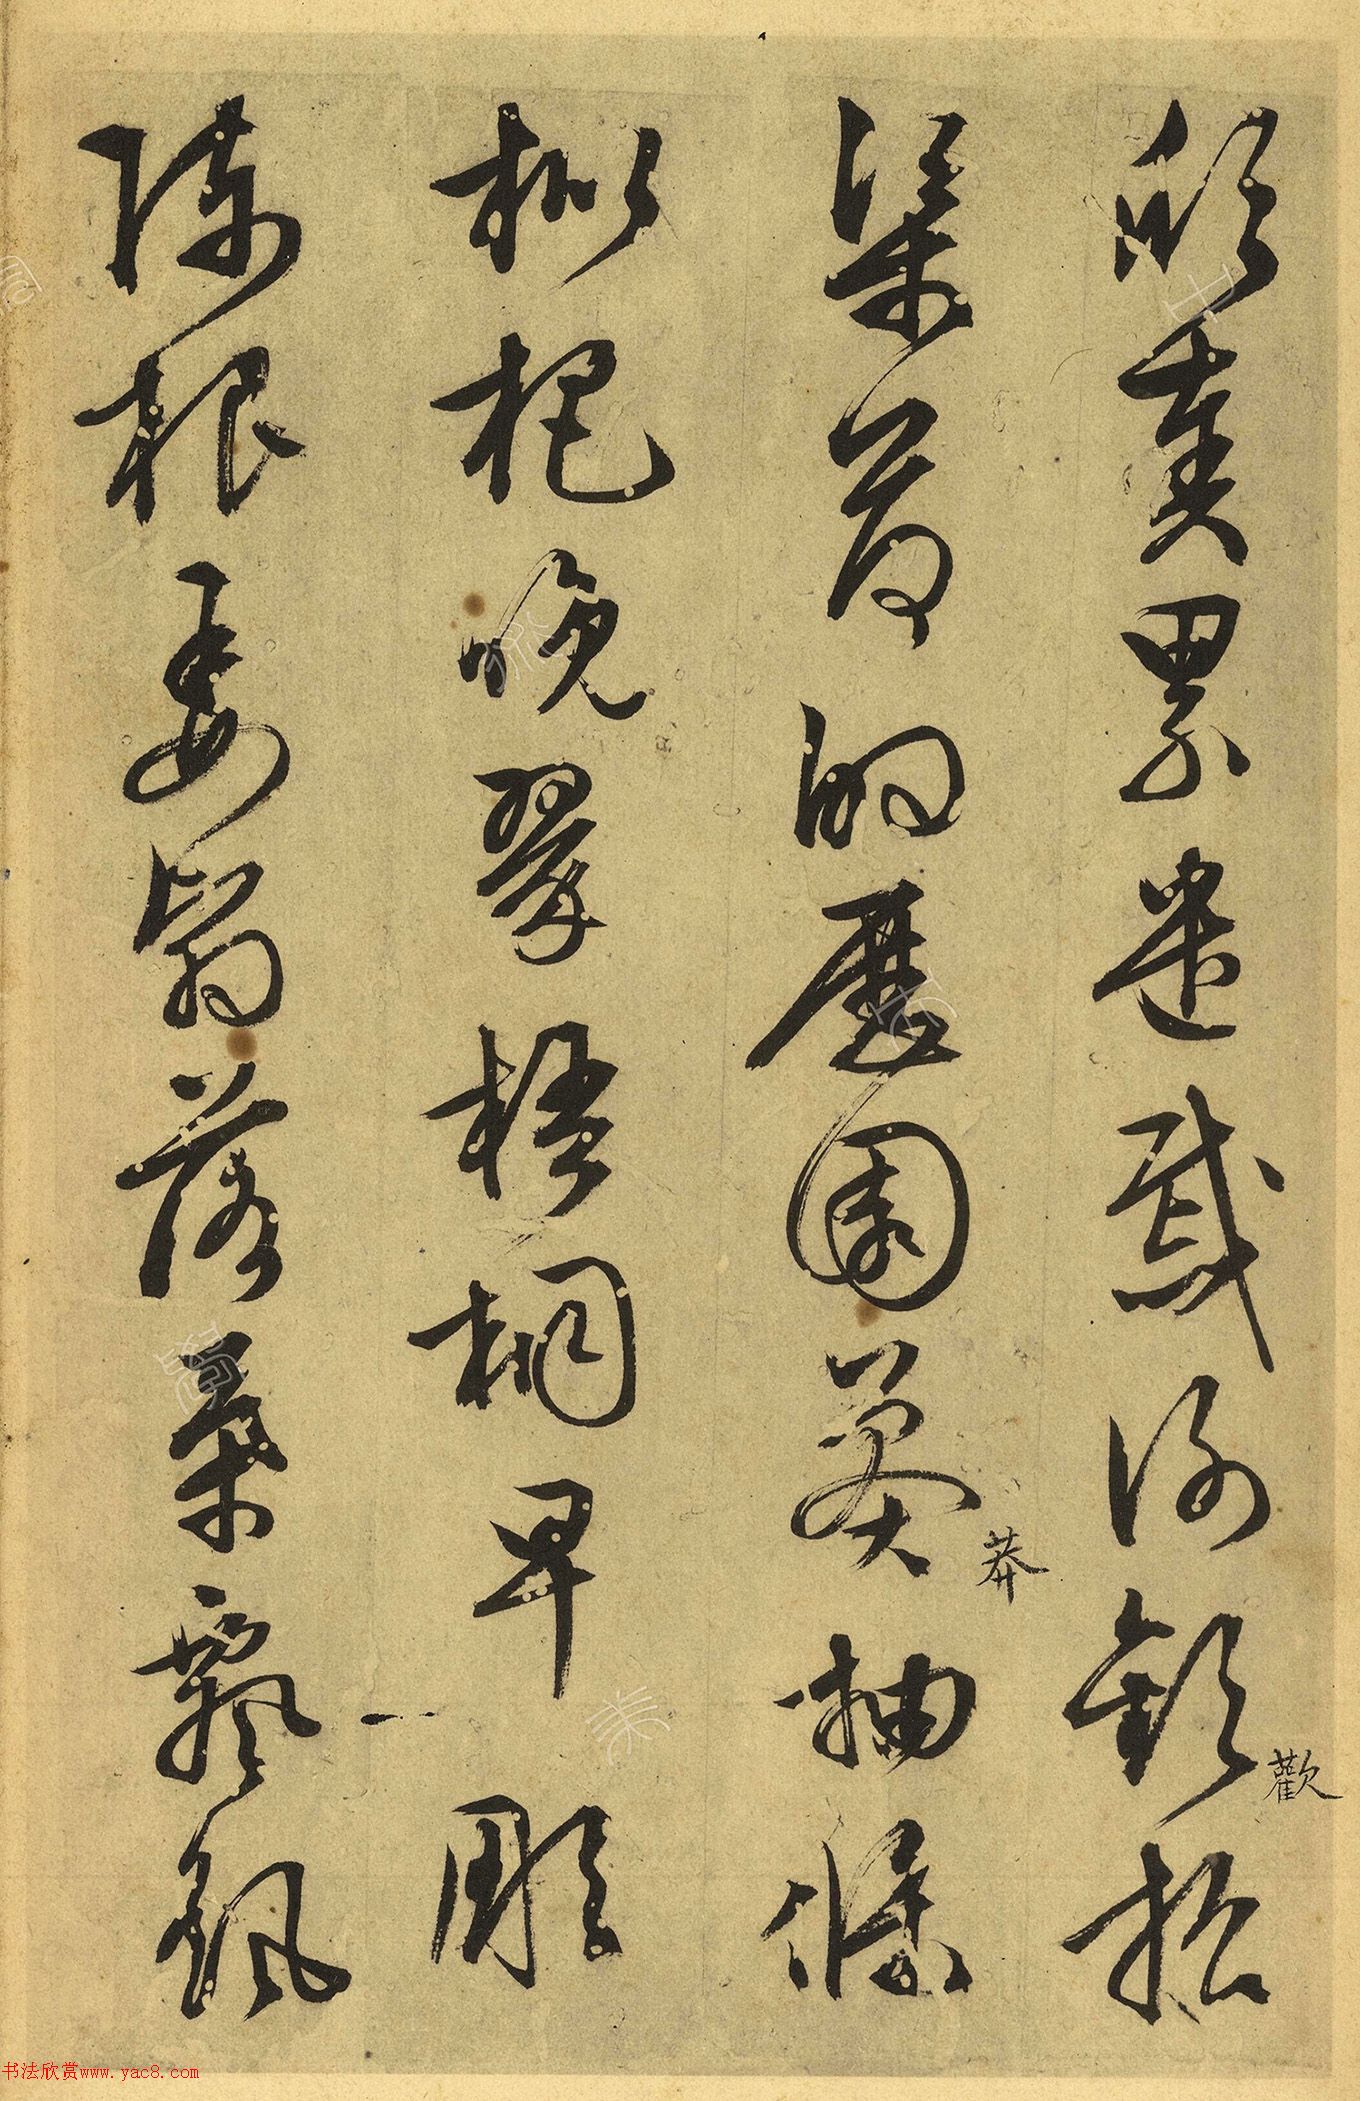 欣奏累遣慼謝歡招
歡
渠荷的歷園莽抽條
莽
枇杷晚翠梧桐早彫
陳根委翳落葉飄颻
书法欣赏www.yac8.com